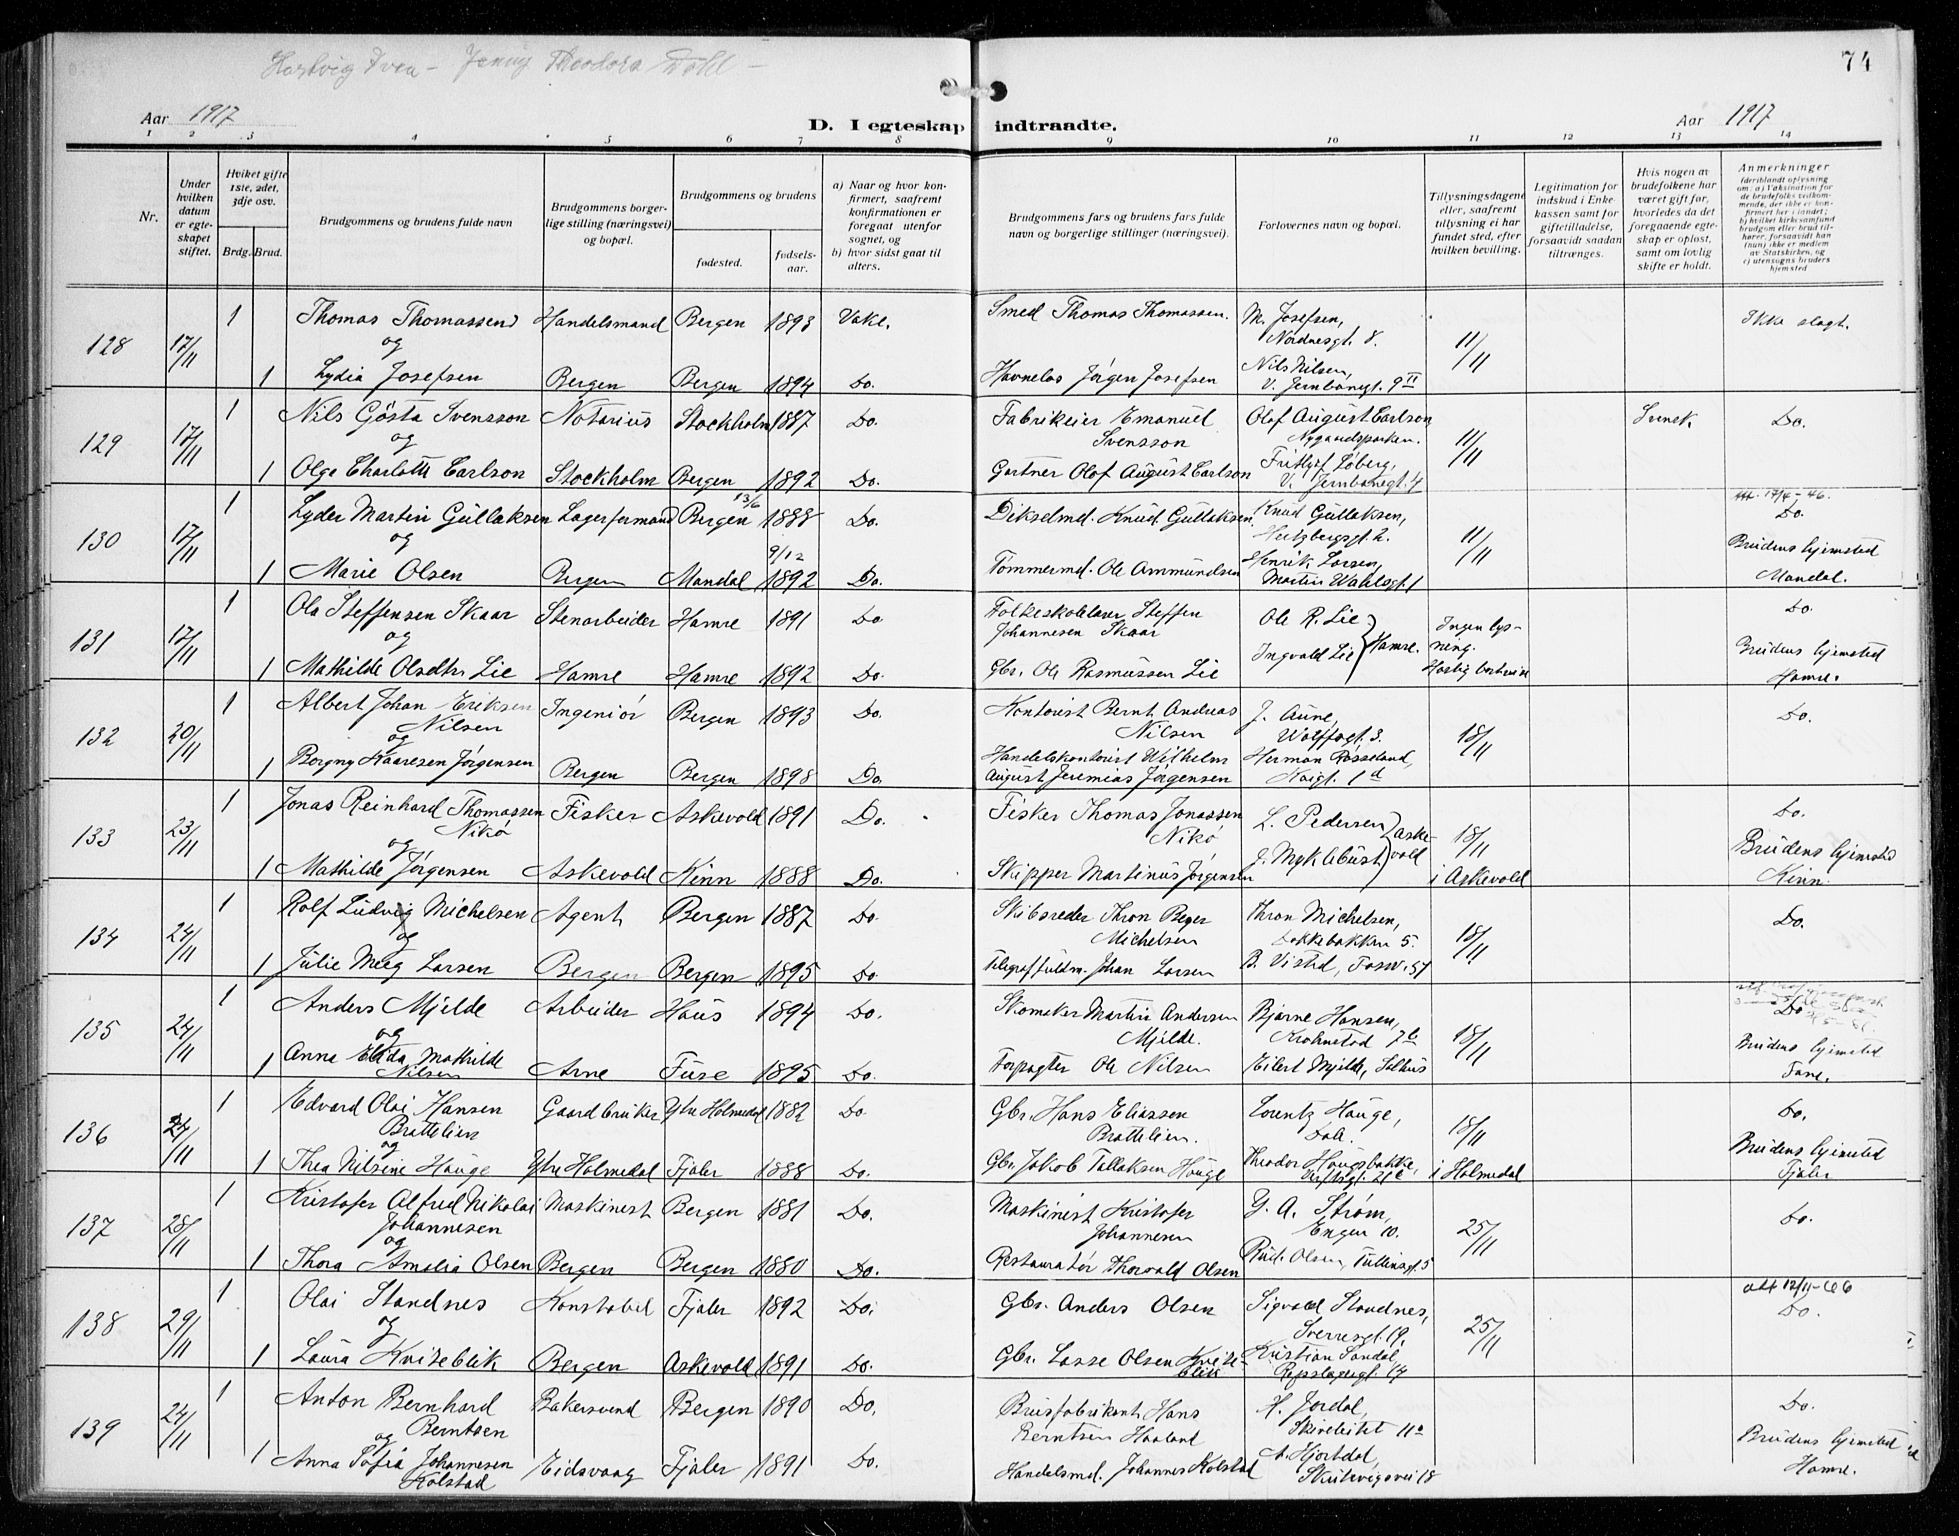 Hartvig Iven – Jenny Theodora Dahl –
74
Aar 1917
D. I egteskap indtraadte.
Aar 1917
1 2 3 4 5 6 7 8 9 10 11 12 13 14
Nr.
Under hvilken datum er egteskapet stiftet.
Hvilket gifte 1ste, 2det, 3dje osv.
Brdg. Brud.
Brudgommens og brudens fulde navn
Brudgommens borgerlige stilling (næringsvei) og bopæl.
Brudgommens og brudens
fødested.
fødselsaar.
a) Naar og hvor konfirmert, saafremt konfirmationen er foregaat utenfor sognet, og
b) hvor sidst gaat til alters.
Brudgommens fars og brudens fars fulde navn og borgerlige stillinger (næringsvei).
Forlovernes navn og bopæl.
Tillysningsdagene eller, saafremt tillysning ei har fundet sted, efter hvilken bevilling.
Legitimation for indskud i Enkekassen samt for giftetilladelse, forsaavidt saadan tiltrænges.
Hvis nogen av brudefolkene har været gift før, hvorledes da det foregaaende egteskap er opløst, samt om lovlig skifte er holdt.
Anmerkninger
(deriblandt oplysning om: a) Vaksination for de brudefolks vedkommende, der ikke er konfirmert her i landet; b) hvilket kirkesamfund brudgom eller brud tilhører, forsaavidt han (hun) ikke er medlem av Statskirken, og c) utensogns bruders hjemsted
128 17/11 1 Thomas Thomassen Handelsmand Bergen 1893 Vake. Smed Thomas Thomassen. M. Josefsen, Nordnesgt. 8. 11/11 Ikke slagt.
og
1 Lydia Josefsen Bergen Bergen 1894 Do. Havnelos Jørgen Josefsen Nils Nilsen, V. Jernbanegt. 9 II
129 17/11 1 Nils Gösta Svensson Notarius Stockholm 1887 Do. Fabrikeier Emanuel Svensson Olof August Carlson Nygaardsparken. 11/11 Svensk. Do.
og
1 Olga Charlotte Carlson Stockholm Bergen 1892 Do. Gartner Olof August Carlson Fritljof Løberg, V. Jernbanegt. 4
130 17/11 1 Lyder Martin Gullaksen Lagerformand Bergen 13/6 1888 Do. Dikselmd. Knud Gullaksen. Knud Gullaksen, Heitzbergsgt. 2. 11/11 att. 17/4-46. Do.
og
1 Marie Olsen Bergen Mandal 9/12 1892 Do. Tømmermd. Ole Ammundsen Henrik Larsen, Martin Wahlsgt. 1 Brudens hjemsted Mandal.
131 17/11 1 Ola Steffensen Skaar Stenarbeider Hamre 1891 Do Folkeskolelærer Steffen Johannesen Skaar Ole R. Lie Ingen lysning.
og
1 Mathilde Olsdtr. Lie Hamre Hamre 1892 Do. Gbr. Ole Rasmussen Lie Ingvald Lie Hamre. Do. Brudens hjemsted Hamre.
132 20/11 1 Albert Johan Eriksen Nilsen Ingeniør Bergen 1893 Do. Kontorist Bernt Andreas Nilsen J. Aune, Wolffsgt. 3. 18/11 Do.
og
1 Borgny Kaaresen Jørgensen Bergen Bergen 1898 Do. Handelskontorist Wilhelm August Jeremias Jørgensen Herman Røsseland, Kaigt. 1 d
133 23/11 1 Jonas Reinhard Thomassen Nikø Fisker Askevold 1891 Do. Fisker Thomas Jonassen Nikø L. Pedersen 18/11 Do.
og
1 Mathilde Jørgensen Askevold Kinn 1888 Do. Skipper Martinus Jørgensen J. Myklebust Askevold i Askevold Brudens hjemsted Kinn.
134 24/11 1 Rolf Ludvig Michelsen Agent Bergen 1887 Do Skibsreder Thron Beyer Michelsen Thron Michelsen, Dokkebakken 5. 18/11 Do.
og
1 Julie Meeg Larsen Bergen Bergen 1895 Do Telegraffuldm. Johan Larsen B. Vistad,
135 24/11 1 Anders Mjelde Arbeider Haus 1894 Do. Skomaker Martin Andersen Mjelde. Bjarne Hansen, Krohnstad 7 b 18/11 Do
og
1 Anna Elida Mathilde Nilsen Arne Fuse 1895 Do. Forpagter Ole Nilsen Eilert Mjelde, Salhus Brudens hjemsted Fane.
136 24/11 1 Edvard Olai Hansen Brattelien Gaardbruker Ytre Holmedal 1882 Do. Gbr. Hans Eliassen Brattelien. Lorentz Hauge, Dale. 18/11 Do.
og
1 Thea Nilsine Hauge Ytre Holmedal Fjaler 1888 Do. Gbr. Jakob Tollaksen Hauge Theodor Haugsbakke, i Holmedal Brudens hjemsted Fjaler
137 28/11 1 Kristofer Alfred Nikolai Johannesen Maskinist Bergen 1881 Do. Maskinist Kristofer Johannesen Y. A. Strøm, Engen 10. 25/11 Do.
og
1 Thora Amalia Olsen Bergen Bergen 1880 Do. Restauratør Thorvald Olsen Rud. Olsen, Tullinsgt. 5
138 29/11 1 Olai Standnes Konstabel Fjaler 1892 Do. Gbr. Anders Olsen Sigvald Standnes, Sverresgt. 19. 25/11 att 12/11-66 Do.
og
1 Laura Kviteblik Bergen Askevold 1891 Do. Gbr. Lasse Olsen Kviteblik Kristian Sandal, Repslagergt. 14
139 24/11 1 Anton Bernhard Berntsen Bakersvend Bergen 1890 Do. Brusfabrikant Hans Berntsen Haaland H. Jordal, Skiveleitet 11a Do.
og
1 Anna Sofia Johannesen Kolstad Eidsvaag Fjaler 1891 Do. Handelsmd. Johannes Kolstad A. Hjortdal, Skutevigsvei 18 Brudens hjemsted Hamre.